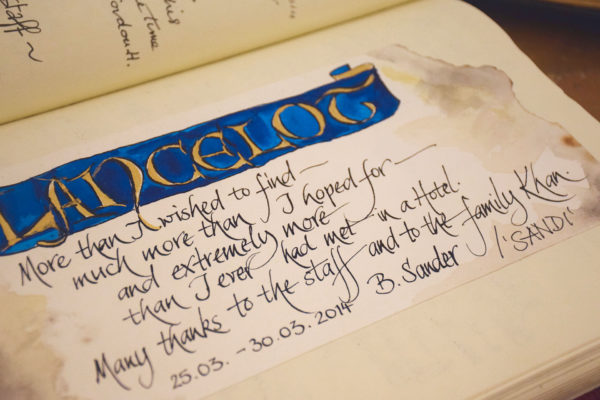 staff ~
this
time
LANCELOT
More than I wished to find —
much more than I hoped for —
and extremely more
than I ever had met in a Hotel.
Many thanks to the staff and to the family Khan
25.03. - 30.03. 2014 B. Sander /"SANDI"